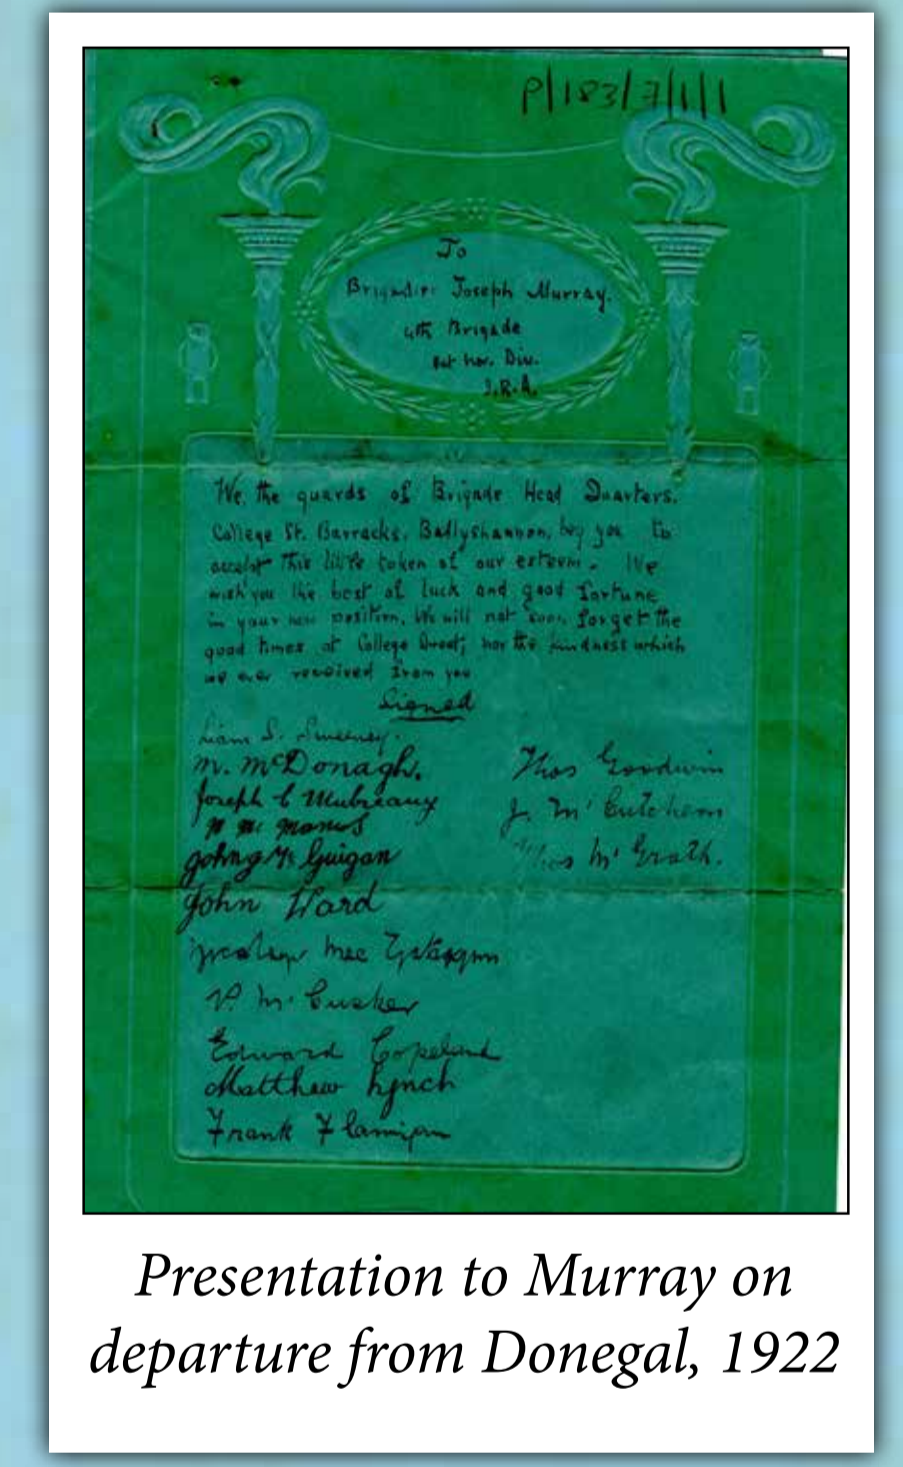 P/183/7/1/1
To
Brigadier Joseph Murray.
4th Brigade
1st Nor. Div.
I.R.A.
We, the guards of Brigade Head Quarters,
College St. Barracks, Ballyshannon, beg you to
accept this little token of our esteem. We
wish you the best of luck and good fortune
in your new position. We will not soon forget the
good times at College Street, nor the kindness which
we ever received from you
Signed
Liam S. Sweeney.
M. McDonagh.
Thos Goodwin
Joseph C
J. Mc Cutcheon
Mc Manus
Thos Mc Grath.
John Mc Guigan
John Ward
Mac
P. Mc Cusker
Edward Copeland
Matthew Lynch
Frank Flannigan
Presentation to Murray on
departure from Donegal, 1922